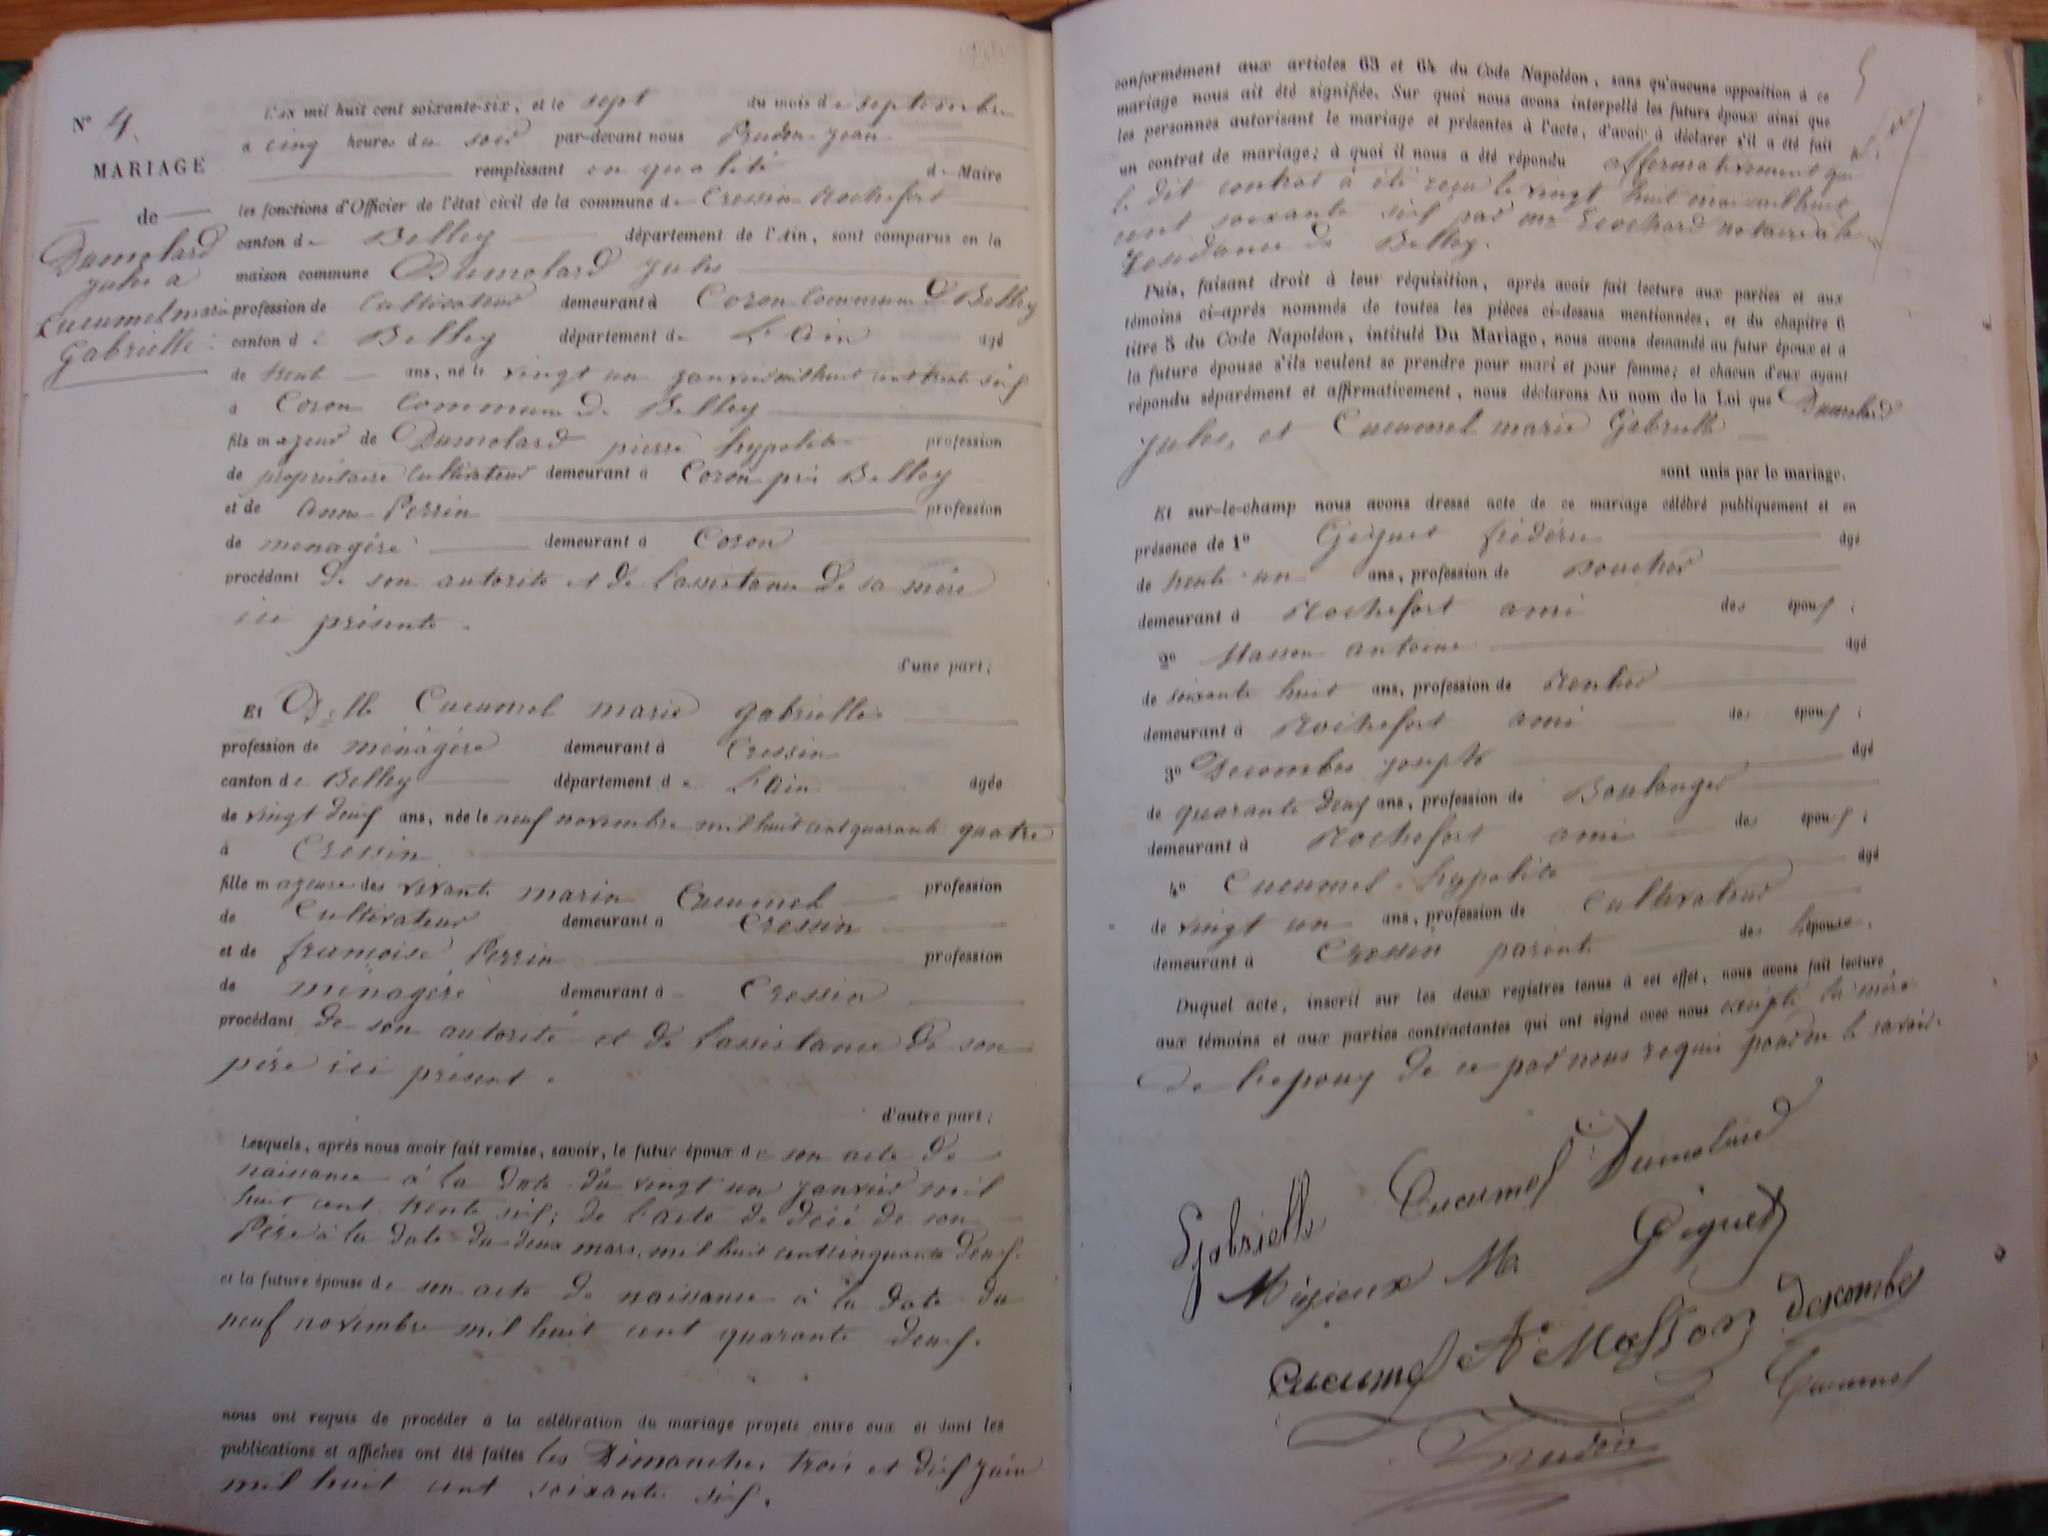 N° 4.
MARIAGE
de
Dumolard
jules a
Cucumel marie
Gabrielle
L'an mil huit cent soixante-six, et le sept du mois de septembre
à cinq heures du soir par-devant nous Prudon jean
remplissant en qualité de Maire
les fonctions d'Officier de l'état civil de la commune de Cressin Rochefort
canton de Belley département de l'Ain, sont comparus en la
maison commune Dumolard jules
profession de Cultivateur demeurant à Coron Commune de Belley
canton de Belley département de L'Ain âgé
de trente ans, né le vingt un janvier mil huit cent trente six
à Coron Commune de Belley
fils majeur de Dumolard pierre hypolite profession
de propriétaire Cultivateur demeurant à Coron prè Belley
et de anne Perrin profession
de menagère demeurant à Coron
procédant de son autorité et de l'assistance de sa mère
ici présente.
d'une part;
Et Delle Cucumel marie gabrielle
profession de ménagère demeurant à Cressin
canton de Belley département de L'ain âgée
de vingt deux ans, née le neuf novembre mil huit cent quarante quatre
à Cressin
fille majeure des vivants marin Cucumel profession
de Cultivateur demeurant à Cressin
et de francoise Perrin profession
de ménagère demeurant à Cressin
procédant de son autorité et de l'assistance de son
père ici présent.
d'autre part;
Lesquels, après nous avoir fait remise, savoir, le futur époux de son acte de
naissance à la date du vingt un janvier mil
huit cent trente six; de l'acte de décé de son
Père à la date du deux mars mil huit cent cinquante deux.
et la future épouse de son acte de naissance à la date du
neuf novembre mil huit cent quarante deux.
nous ont requis de procéder à la célébration du mariage projeté entre eux et dont les
publications et affiches ont été faites les Dimanches trois et dix juin
mil huit cent soixante six.
5
conformément aux articles 63 et 64 du Code Napoléon, sans qu'aucune opposition à ce
mariage nous ait été signifiée. Sur quoi nous avons interpellé les futurs époux ainsi que
les personnes autorisant le mariage et présentes à l'acte, d'avoir à déclarer s'il a été fait
un contrat de mariage; à quoi il nous a été répondu affermativement que
le dit contrat à été reçu le vingt huit mai mil huit
cent soixante six par me notaire à la
residance de Belley.
Puis, faisant droit à leur réquisition, après avoir fait lecture aux parties et aux
témoins ci-après nommés de toutes les pièces ci-dessus mentionnées, et du chapitre 6
titre 5 du Code Napoléon, intitulé Du Mariage, nous avons demandé au futur époux et à
la future épouse s'ils veulent se prendre pour mari et pour femme; et chacun d'eux ayant
répondu séparément et affirmativement, nous déclarons Au nom de la Loi que Dumolard
jules, et Cucumel marie Gabrielle
sont unis par le mariage.
Et sur-le-champ nous avons dressé acte de ce mariage célébré publiquement et en
présence de 1° Giguet frédéric âgé
de trente un ans, profession de Boucher
demeurant à Rochefort ami des époux;
2° Masson antoine âgé
de soixante huit ans, profession de Rentier
demeurant à Rochefort ami des époux;
3° Decombes joseph âgé
de quarante deux ans, profession de Boulanger
demeurant à Rochefort ami des époux;
4° Cucumel hypolite âgé
de vingt un ans, profession de Cultivateur
demeurant à Cressin parent de l'épouse.
Duquel acte, inscrit sur les deux registres tenus à cet effet, nous avons fait lecture
aux témoins et aux parties contractantes qui ont signé avec nous excepté la mère
de l'epoux de ce par nous requis pour ne le savoir.
Gabrielle Cucumel Dumolard
M. Giguet
Cucumel A Masson Descombes
Cucumel
Prudon